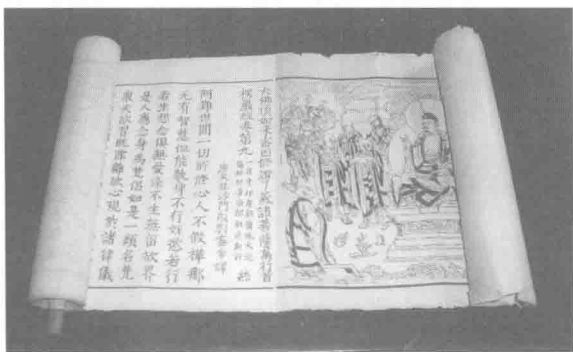 大佛頂如來密因修證了義諸菩薩萬行首
楞嚴經卷第九
唐天竺沙門般剌蜜帝譯
阿難世間一切所修心人不假禪那
无有智慧但能執身不行婬慾若行
若坐想念俱無愛染不生無留欲界
是人應念身為梵侶如是一類名梵
眾天欲習既除離欲心現於諸律儀